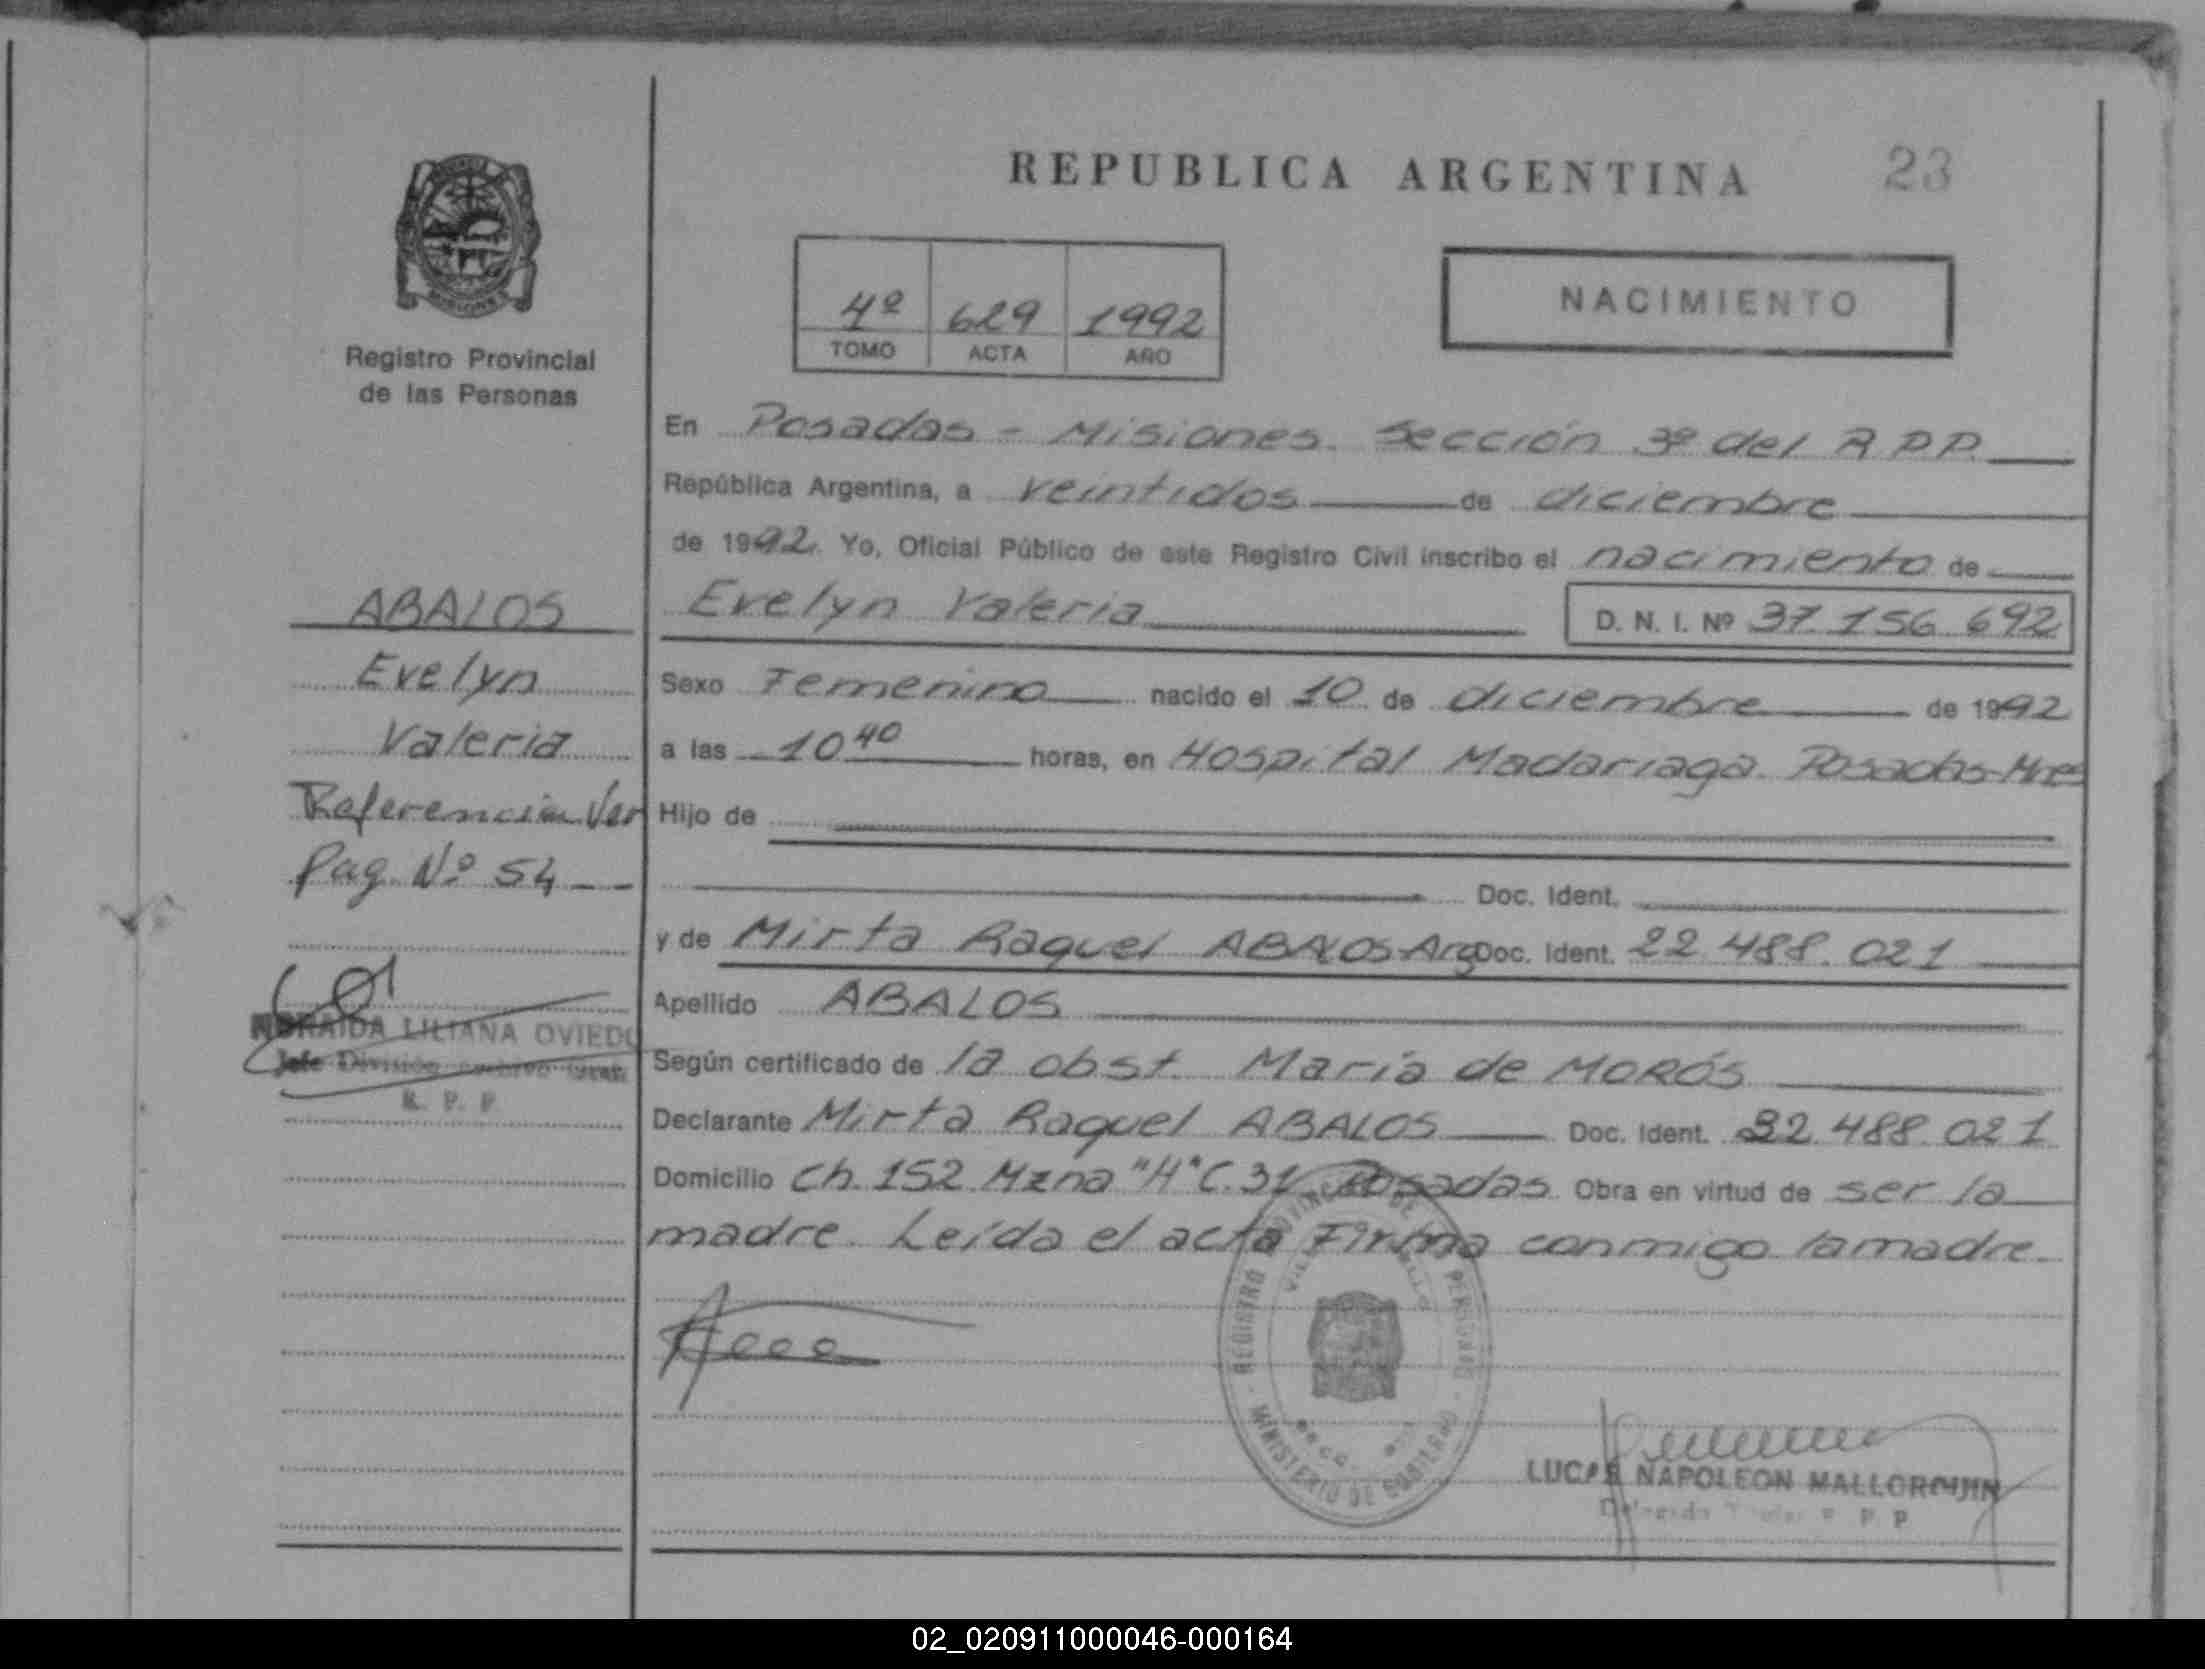 REPUBLICA ARGENTINA 23
4º 629 1992
TOMO ACTA AÑO
NACIMIENTO
Registro Provincial
de las Personas
En Posadas - Misiones. Sección 3º del R.P.P.
República Argentina, a veintidos de diciembre
de 1992. Yo, Oficial Público de este Registro Civil inscribo el nacimiento de
Evelyn Valeria D. N. I. Nº 37.156.692
Sexo Femenino nacido el 10 de diciembre de 1992
a las 10 40 horas, en Hospital Madariaga. Posadas-Mnes
Hijo de
Doc. Ident.
y de Mirta Raquel ABALOS-Arg Doc. Ident. 22.488.021
Apellido ABALOS
Según certificado de la obst. Maria de MORÓS
Declarante Mirta Raquel ABALOS Doc. Ident. 22.488.021
Domicilio Ch. 152 Mzna "H" C.31 Posadas. Obra en virtud de ser la
madre. Leída el acta Firma conmigo la madre.
ABALOS
Evelyn
Valeria
Referencia Ver
Pag. Nº 54
LILIANA OVIEDO
Jefe División
R. P. P.
REGISTRO PROVINCIAL DE LAS PERSONAS
MINISTERIO DE GOBIERNO
LUCAS NAPOLEON MALLORQUIN
R P P
02_020911000046-000164